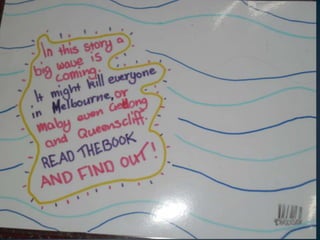 In this story a
big wave is
coming.
It might kill everyone
in Melbourne, or
maby even Geelong
and Queenscliff.
READ THE BOOK
AND FIND OUT!